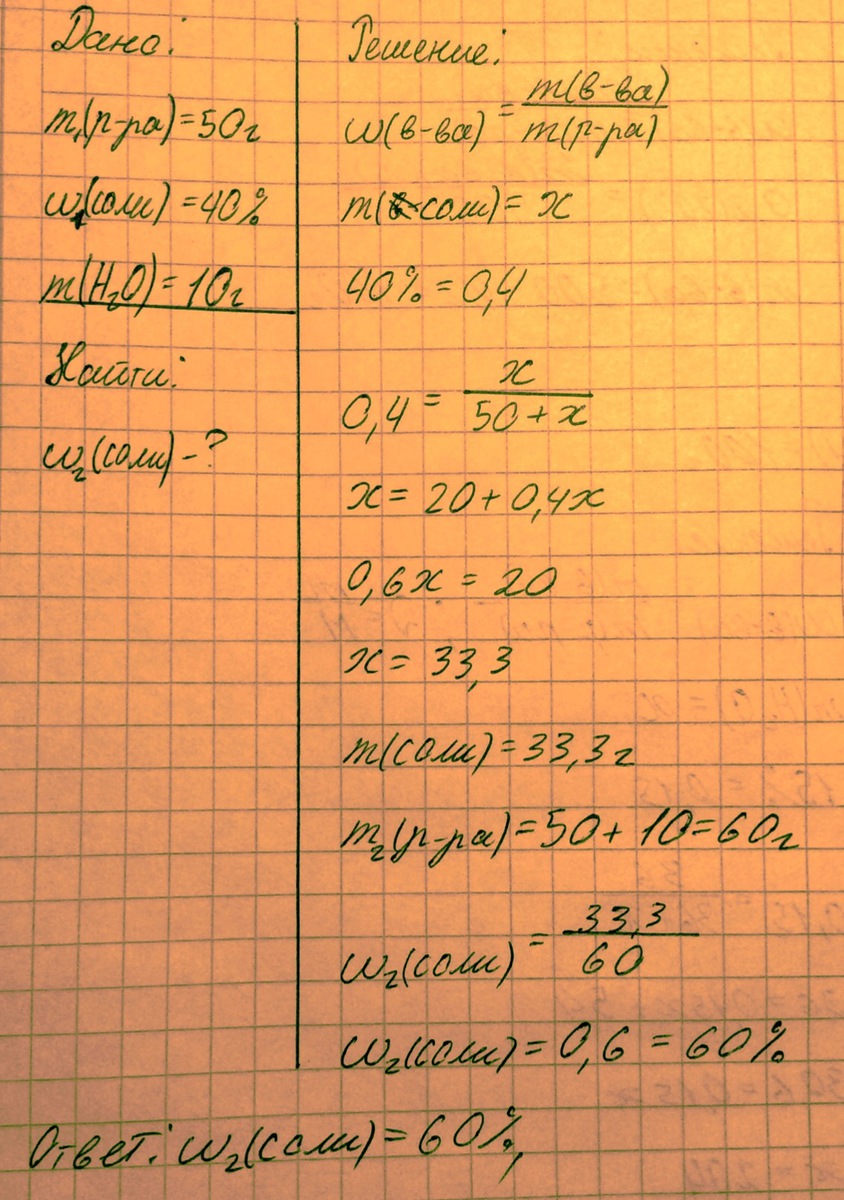 Дано:
m₁(р-ра)=50г
w₁(соли)=40%
m(H₂O)=10г
Найти:
w₂(соли)-?
Решение:
w(в-ва) = m(в-ва) / m(р-ра)
m(соли)=x
40%=0,4
0,4 = x / 50+x
x=20+0,4x
0,6x=20
x=33,3
m(соли)=33,3г
m₂(р-ра)=50+10=60г
w₂(соли) = 33,3 / 60
w₂(соли)=0,6=60%
Ответ: w₂(соли)=60%,